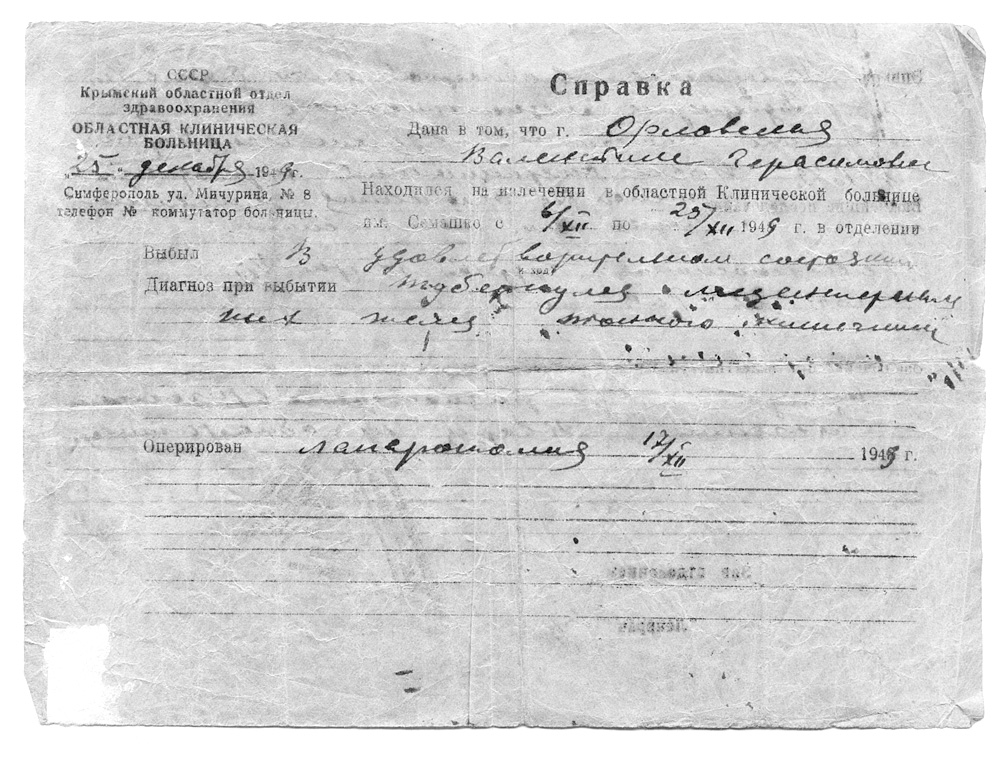 СССР
Крымский областной отдел
здравоохранения
ОБЛАСТНАЯ КЛИНИЧЕСКАЯ
БОЛЬНИЦА
"25" декабря 1949г.
Симферополь ул. Мичурина, № 8
телефон № коммутатор больницы.
Справка
Дана в том, что г. Орловская
Валентине Герасимовне
Находился на излечении в областной Клинической больнице
им. Семашко с 6/XII. по 25/XII 1949 г. в отделении
Выбыл В удовлетворительном состоянии
исход
Диагноз при выбытии Туберкулез мезентериаль
ных желез тонкого кишечника
Оперирован лапаротомия 17/XII 1949 г.
Зав отделением
Лечврач